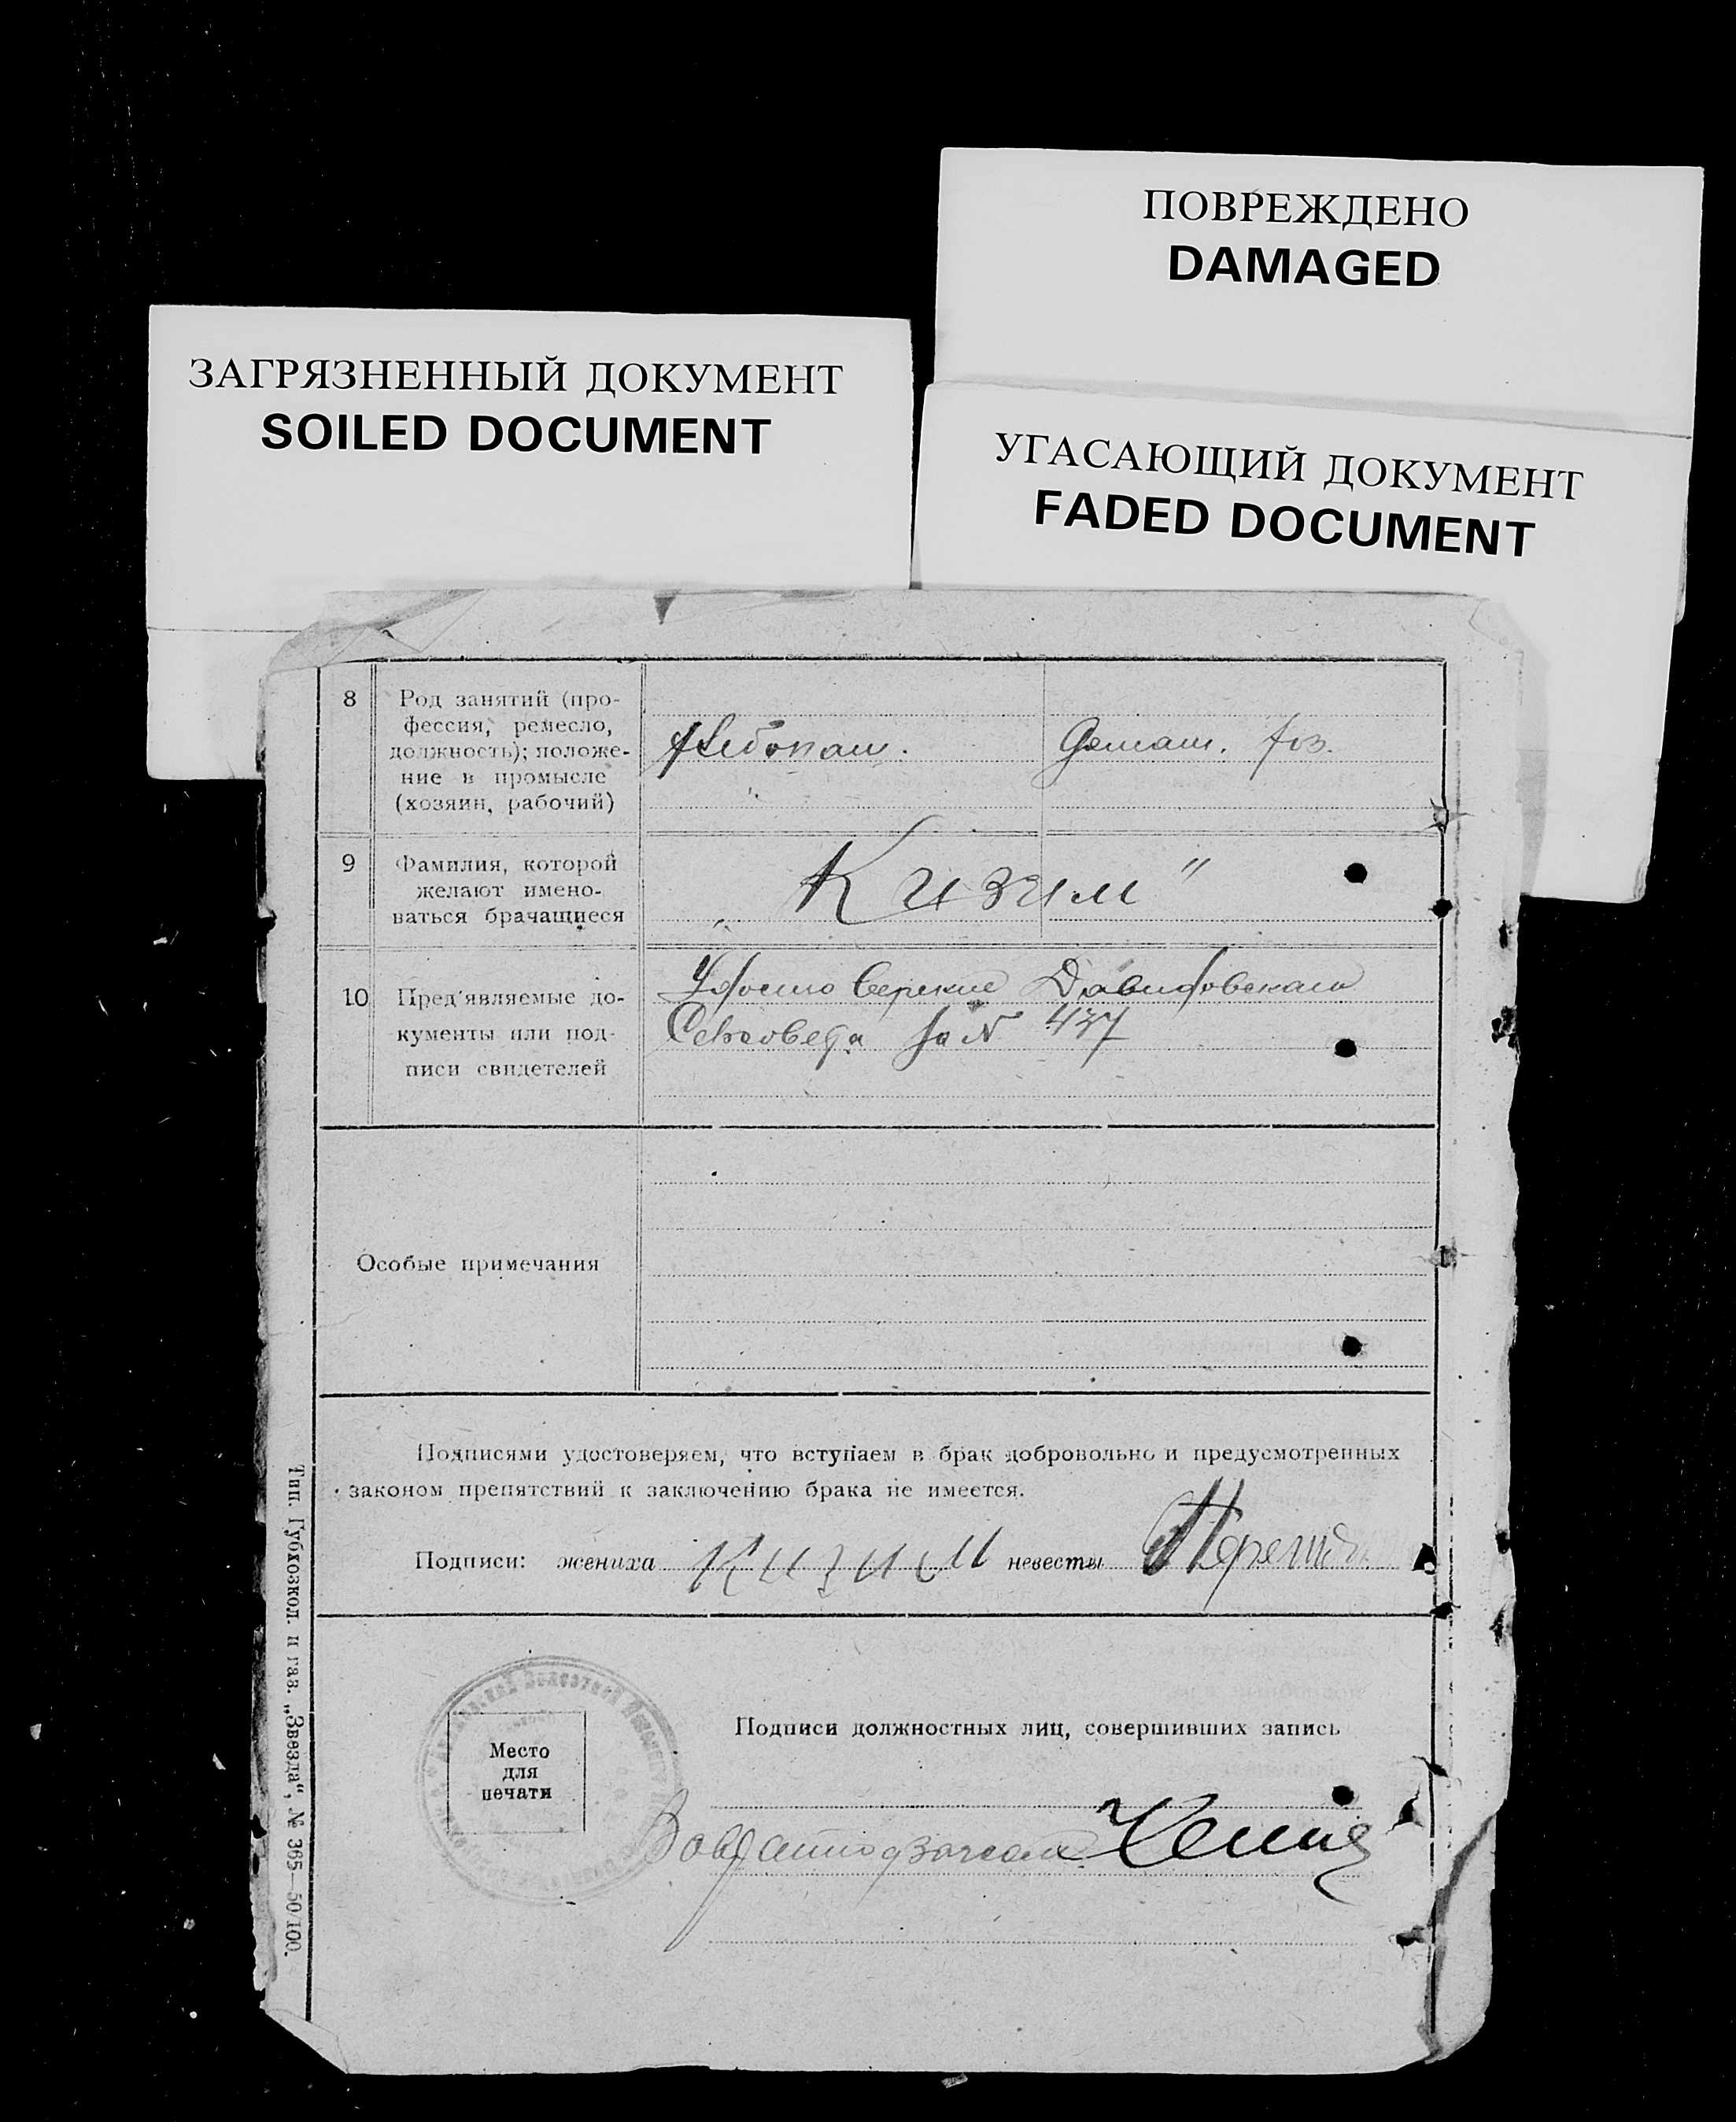 ПОВРЕЖДЕНО
DAMAGED
ЗАГРЯЗНЕННЫЙ ДОКУМЕНТ
SOILED DOCUMENT
УГАСАЮЩИЙ ДОКУМЕНТ
FADED DOCUMENT
8
Род занятий (про-
фессия, ремесло,
должность); положе-
ние в промысле
(хозяин, рабочий)
Хлебопаш.
Домаш. хоз.
9
Фамилия, которой
желают имено-
ваться брачащиеся
„ Кизим "
10
Пред'являемые до-
кументы или под-
писи свидетелей
Удостоверение Давидовскаго
Сельсовета за № 437
Особые примечания
Подписями удостоверяем, что вступаем в брак добровольно и предусмотренных
законом препятствий к заключению брака не имеется.
Подписи: жениха Кизим невесты
Место
для
печати
Подписи должностных лиц, совершивших запись
Тип. Губхозкол. и газ. „Звезда", № 365—50/100.